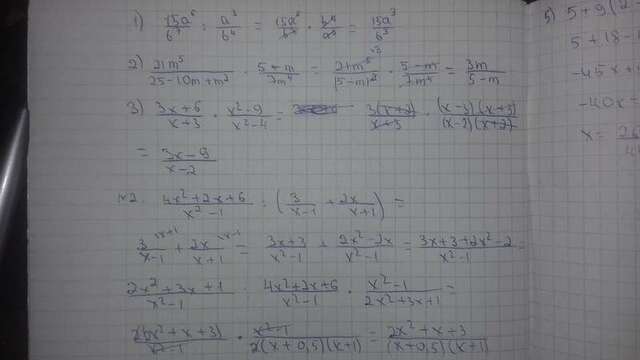 1) 15a⁵/b : a²/b⁴ = 15a⁵/b · b⁴/a² = 15a³b³
2) 21m⁵/25-10m+m² · 5-m/7m⁴ = 21m⁵/(5-m)² · 5-m/7m⁴ = 3m/5-m
3) 3x+6/x+3 · x²-9/x²-4 = 3(x+2)/x+3 · (x-3)(x+3)/(x-2)(x+2)
= 3x-9/x-2
N2. 4x²+2x+6/x²-1 : (3/x-1 + 2x/x+1) =
3/x-1 + 2x/x+1 = 3x+3/x²-1 + 2x²-2x/x²-1 = 3x+3+2x²-2/x²-1
2x²+3x+1/x²-1 4x²+2x+6/x²-1 · x²-1/2x²+3x+1 =
2(2x²+x+3)/x²-1 · x²-1/2(x+0,5)(x+1) = 2x²+x+3/(x+0,5)(x+1)
5+18-
-45x+
-40x
x=